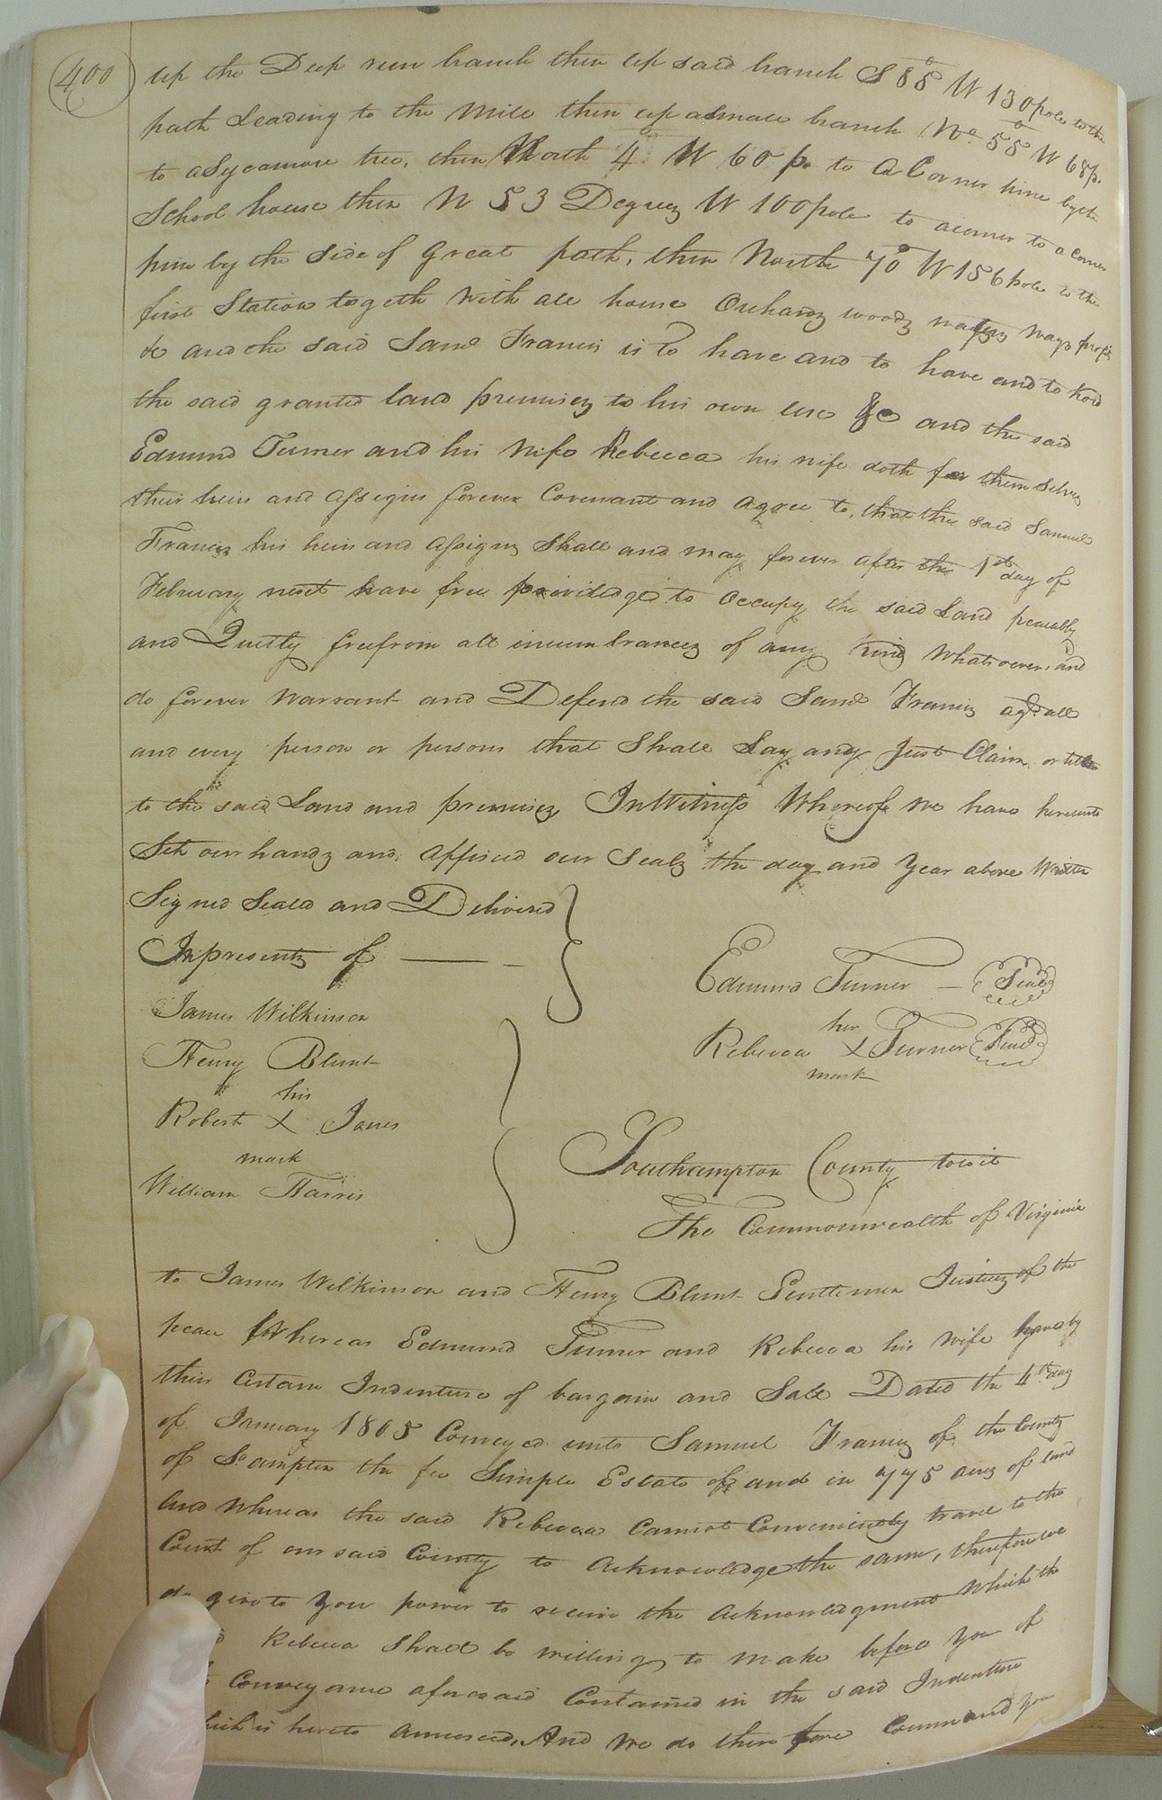 400
up the Deep run branch then up said branch S 85° W 130 pole to the
path Leading to the Mill then up a small branch No. 55° W 68 p.
to a Sycamore tree, then North 4° W 60 po to a Corner hine by the
School house then N 53 Degreez W 100 pole to a corner to a corner
pine by the Side of Great path, then North 70° W 156 pole to the
first Station togeth with all house Orchardz woodz waterz ways profit
&c and the said Saml Francis is To have and to have and to hold
the said granted land premisez to his own use &c and the said
Edmund Turner and his Wife Rebecca his wife doth for them selvez
their heirs and assigns forever Covenant and agree to, that the said Samuel
Francis his heirs and assignz Shall and may forever after the 1st day of
February next have free priviledge to occupy the said Land peaceably
and Quietly free from all incumbrancez of any kind whatsoever, and
do forever warrant and Defend the said Saml Francis agst all
and every person or persons that Shall Lay any Just Claim or title
to the said Land and premisez In Witness Whereof we have hereunto
Set our handz and affixed our Sealz the day and year above Written
Signed Seald and Delivered
In presentz of
Edmund Turner Seal
James Wilkinson
her
Rebecca X Turner Seal
mark
Henry Blunt
his
Robert X Jones
mark
William Harris
Southampton County towit
The Commonwealth of Virginia
to James Wilkinson and Henry Blunt Gentlemen Justicez of the
peace Whereas Edmund Turner and Rebecca his Wife have by
their Certain Indenture of bargain and Sale Dated the 4th day
of January 1805 Conveyed unto Samuel Francis of the County
of S.ampton the fee Simple Estate of and in 775 acrez of land
And whereas the said Rebecca Cannot Conveniently travel to the
Court of our said County to Acknowledge the same, therefore we
do give to you power to receive the acknowledgment which the
Rebecca Shall be willing to make before you of
Conveyance aforesaid Contained in the said Indenture
which is hereto annexed, And we do there fore Command you